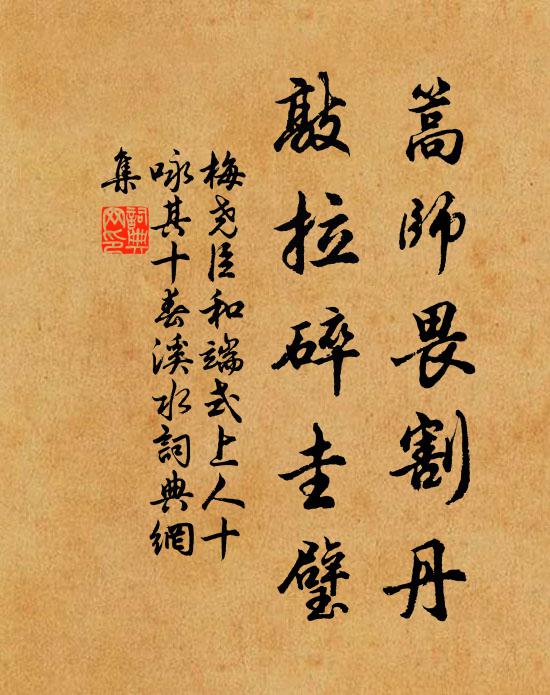 篙師畏割丹
敲拉碎圭璧
梅尧臣和端式上人十
咏其十春溪氷詞典網
集
詞典
网印